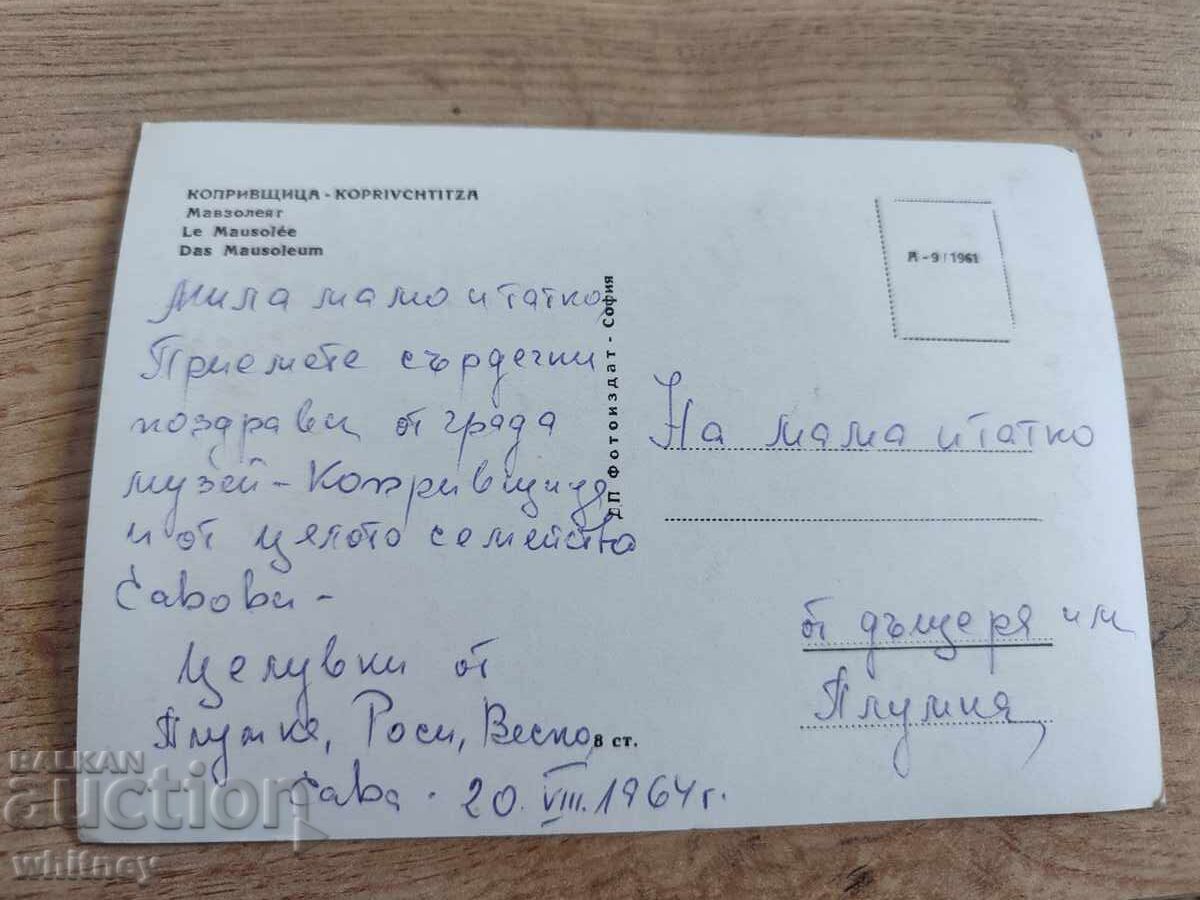 КОПРИВЩИЦА - KOPRIVCHTITZA
Мавзолеят
Le Mausolée
Das Mausoleum
Мила мамо и татко,
Приемете сърдечни
поздрави от града
музей - Копривщица
и от цялото семейство
Савови -
Целувки от
Плумка, Роси, Веско,
Сава - 20.VIII.1964 г.
в ст.
ДП Фотоиздат - София
А - 9 / 1961
На мама и татко
от дъщеря им
BALKAN
auction
whitney